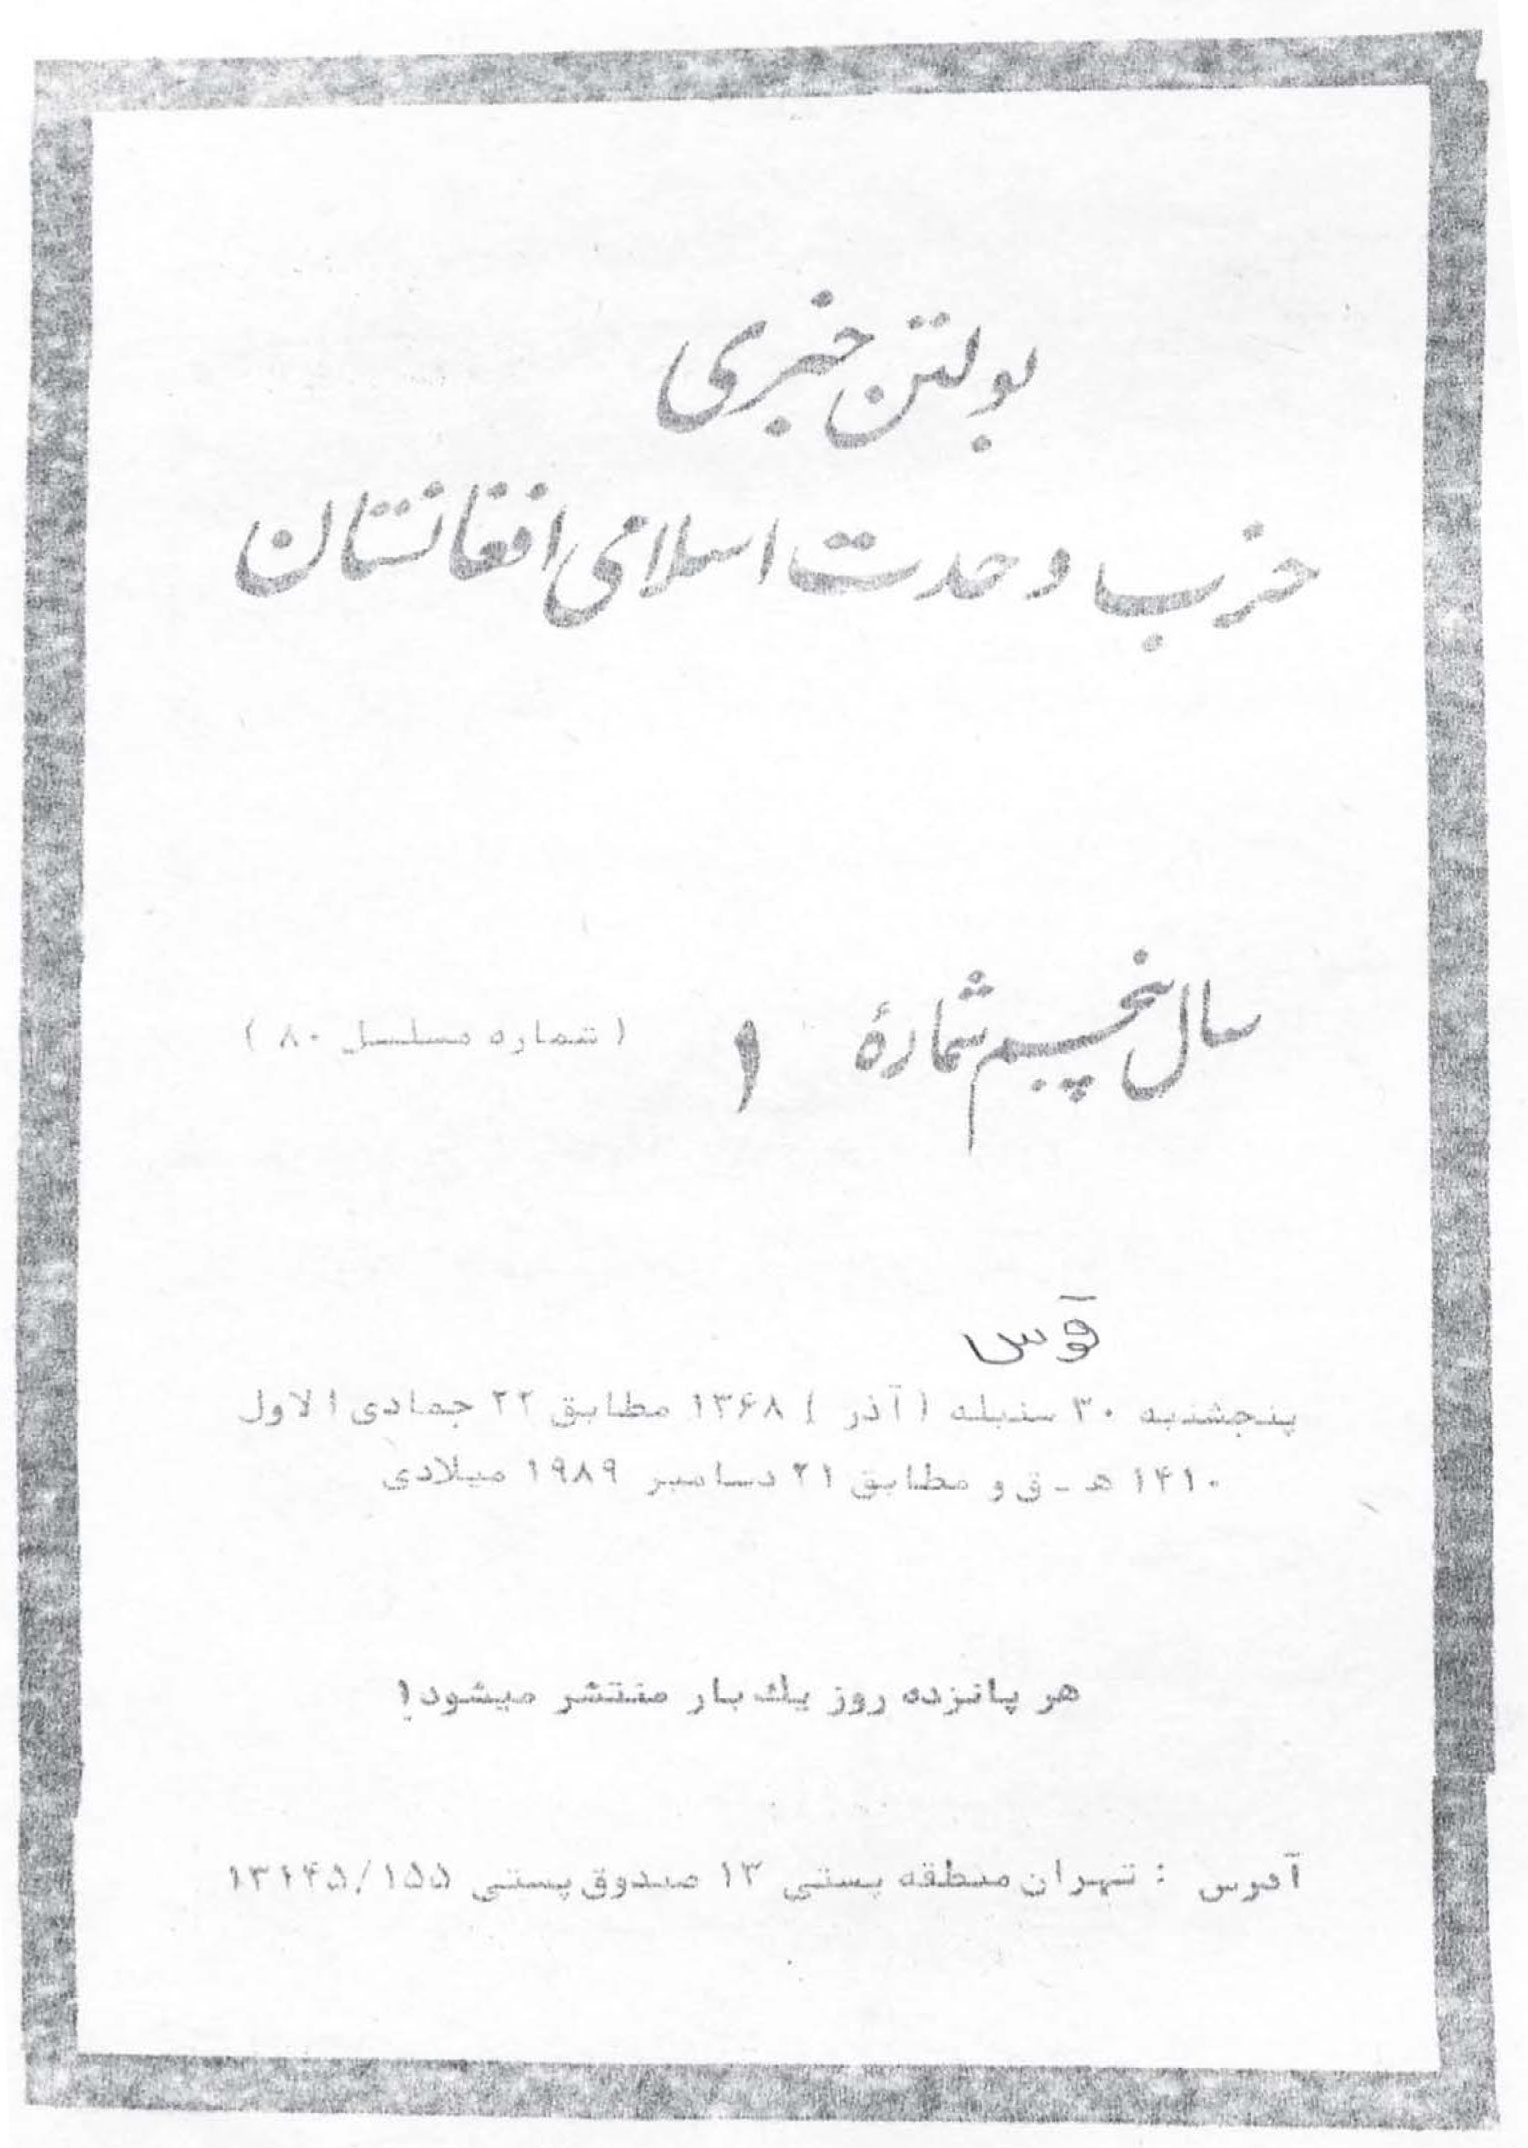 بولتن خبری
حزب وحدت اسلامی افغانستان
سال پنجم شمارهٔ ۱ ( شماره مسلسل ۸۰ )
قوس
پنجشنبه ۳۰ سنبله ( آذر ) ۱۳۶۸ مطابق ۲۲ جمادی الاول
۱۴۱۰ هـ ـ ق و مطابق ۲۱ دسامبر ۱۹۸۹ میلادی
هر پانزده روز یك بار منتشر میشود!
آدرس : تهران منطقه پستی ۱۳ صندوق پستی ۱۳۱۴۵/۱۵۵